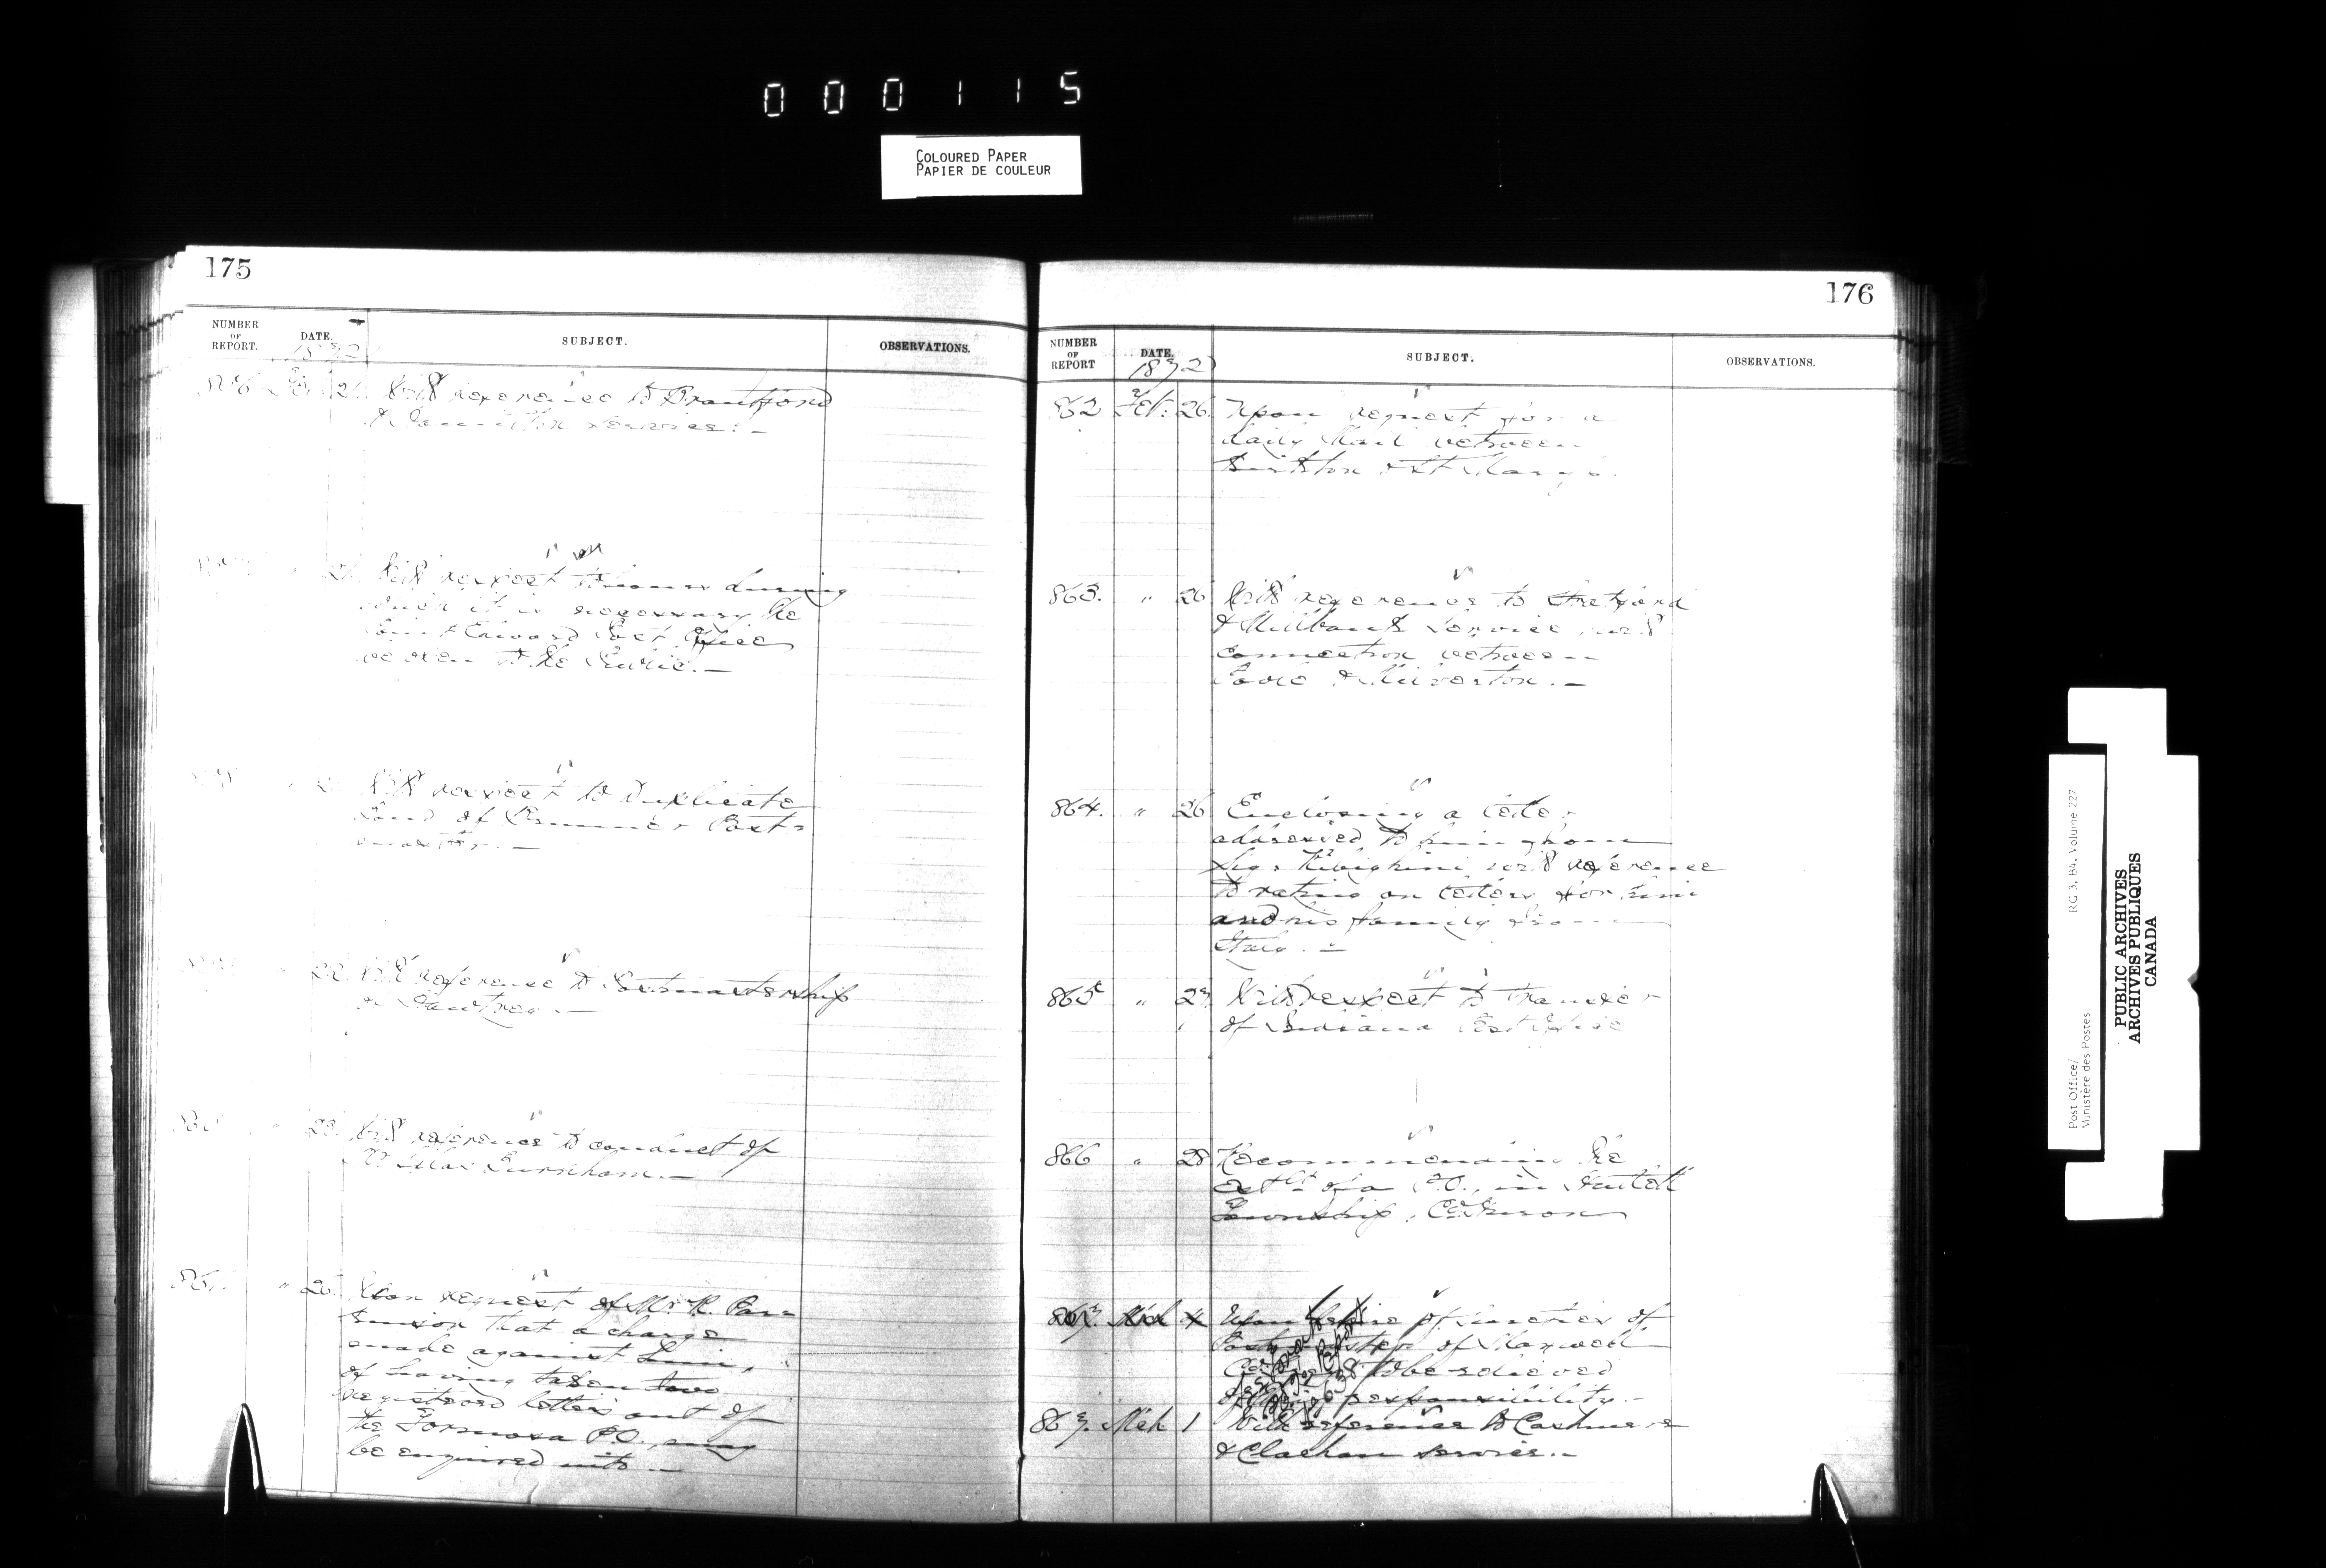 000115
COLOURED PAPER
PAPIER DE COULEUR
175
NUMBER OF REPORT.
DATE.
SUBJECT.
OBSERVATIONS.
1872
21 With reference to Brantford
& Hamilton service. —
21 With respect to hours during
which it is necessary the
Point Edward Post Office
be open to the Public. —
With respect to Duplicate
Bond of Post-
master. —
22 With reference to Postmastership
—
23 With reference to conduct of
Burnham. —
861. " 26. Upon request of Mr. R.
that a charge
made against him,
of having taken two
registered letters out of
the Formosa P.O. may
be enquired into —
176
NUMBER OF REPORT
DATE.
SUBJECT.
OBSERVATIONS.
1872
862 Feb. 26 Upon request for a
daily Mail between
Kirkton & St Marys.
863. " 26 With reference to Stratford
& Millbank service with
connection between
& Milverton. —
864. " 26 Enclosing a letter
addressed to him from
with reference
to rating on letters for him
and his family from
Italy. —
865 " 27 With respect to transfer
of Indiana Post Office
866 " 28 Recommending the
estt. of a P.O., in
Township, Co. Huron
867. Mch 4 Upon desire of sureties of
Postmaster of Maxwell
to be relieved
responsibility. —
867. Mch 1 With reference to Cashmere
& Clachan service. —
Post Office/
Ministère des Postes
RG 3, B4, Volume 227
PUBLIC ARCHIVES
ARCHIVES PUBLIQUES
CANADA